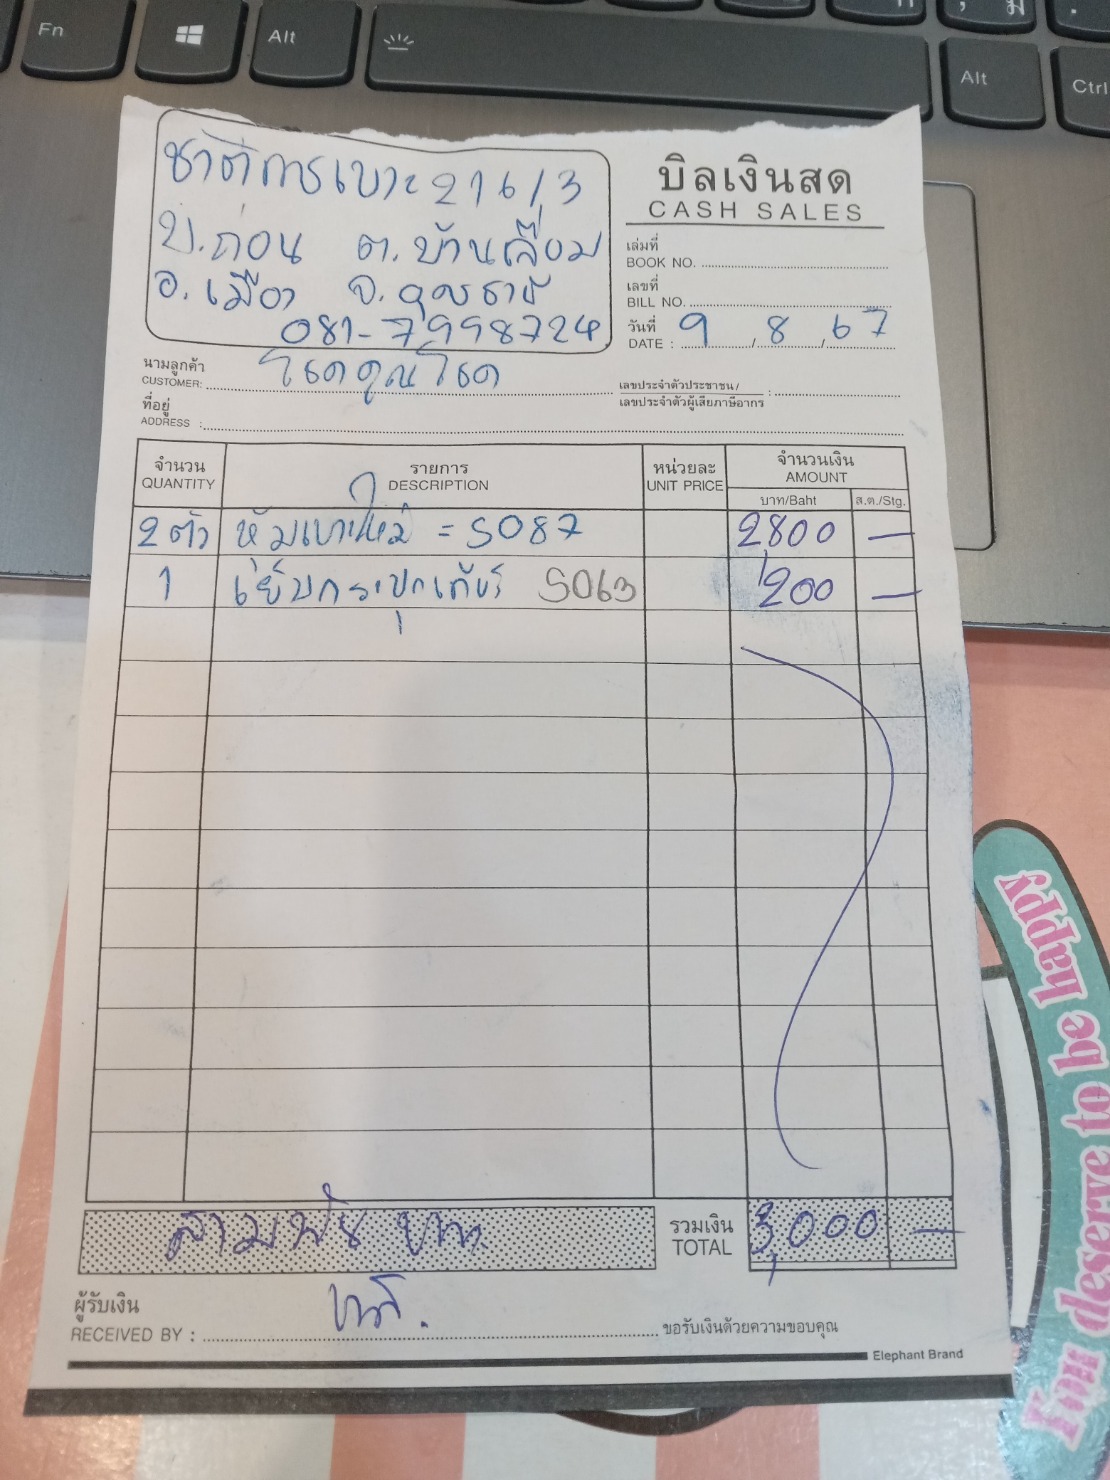 Fn
Alt
Alt
Ctrl
ชาติการเบาะ 216/3
บ.ถ่อน ต.บ้านเลื่อม
อ.เมือง จ.อุดรธานี
081-7998724
บิลเงินสด
CASH SALES
เล่มที่
BOOK NO.
เลขที่
BILL NO.
วันที่
DATE : 9 / 8 / 67
นามลูกค้า
CUSTOMER: โชคคูณโชค
เลขประจำตัวประชาชน/
เลขประจำตัวผู้เสียภาษีอากร :
ที่อยู่
ADDRESS :
จำนวน รายการ หน่วยละ จำนวนเงิน
QUANTITY DESCRIPTION UNIT PRICE AMOUNT
บาท/Baht ส.ต./Stg.
2 ตัว หุ้มเบาะใหม่ = S087 2,800 —
1 เย็บกระปุกเกียร์ S063 1,200 —
สามพัน บาท
รวมเงิน
TOTAL 3,000 —
ผู้รับเงิน
RECEIVED BY :
ขอรับเงินด้วยความขอบคุณ
Elephant Brand
You deserve to be happy